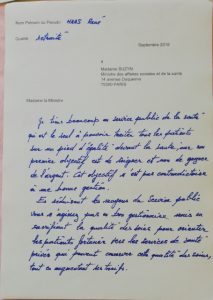 Nom Prénom ou Pseudo : HAAS René
Qualité : retraité
Septembre 2018
A
Madame BUZYN
Ministre des affaires sociales et de la santé
14 avenue Duquesne
75350 PARIS
Madame la Ministre
Je tiens beaucoup au service public de la santé
qui est le seul à pouvoir traiter tous les patients
sur un pied d'égalité devant la santé, car son
premier objectif est de soigner et non de gagner
de l'argent. Cet objectif n'est pas contradictoire
à une bonne gestion.
En réduisant les moyens du Service public
vous n'agissez pas en bon gestionnaire, mais en
sacrifiant la qualité des soins pour orienter
les patients fortunés vers les services de santé
privés qui pourront conserver cette qualité des soins,
tout en augmentant les tarifs.